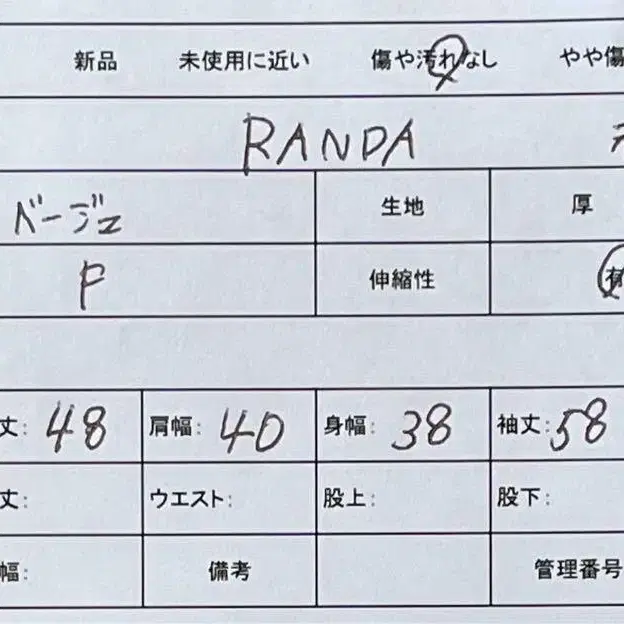 新品 未使用に近い 傷や汚れなし やや傷
RANDA
ベージュ 生地 厚
F 伸縮性 有
丈: 48 肩幅: 40 身幅: 38 袖丈: 58
丈: ウエスト: 股上: 股下:
幅: 備考 管理番号